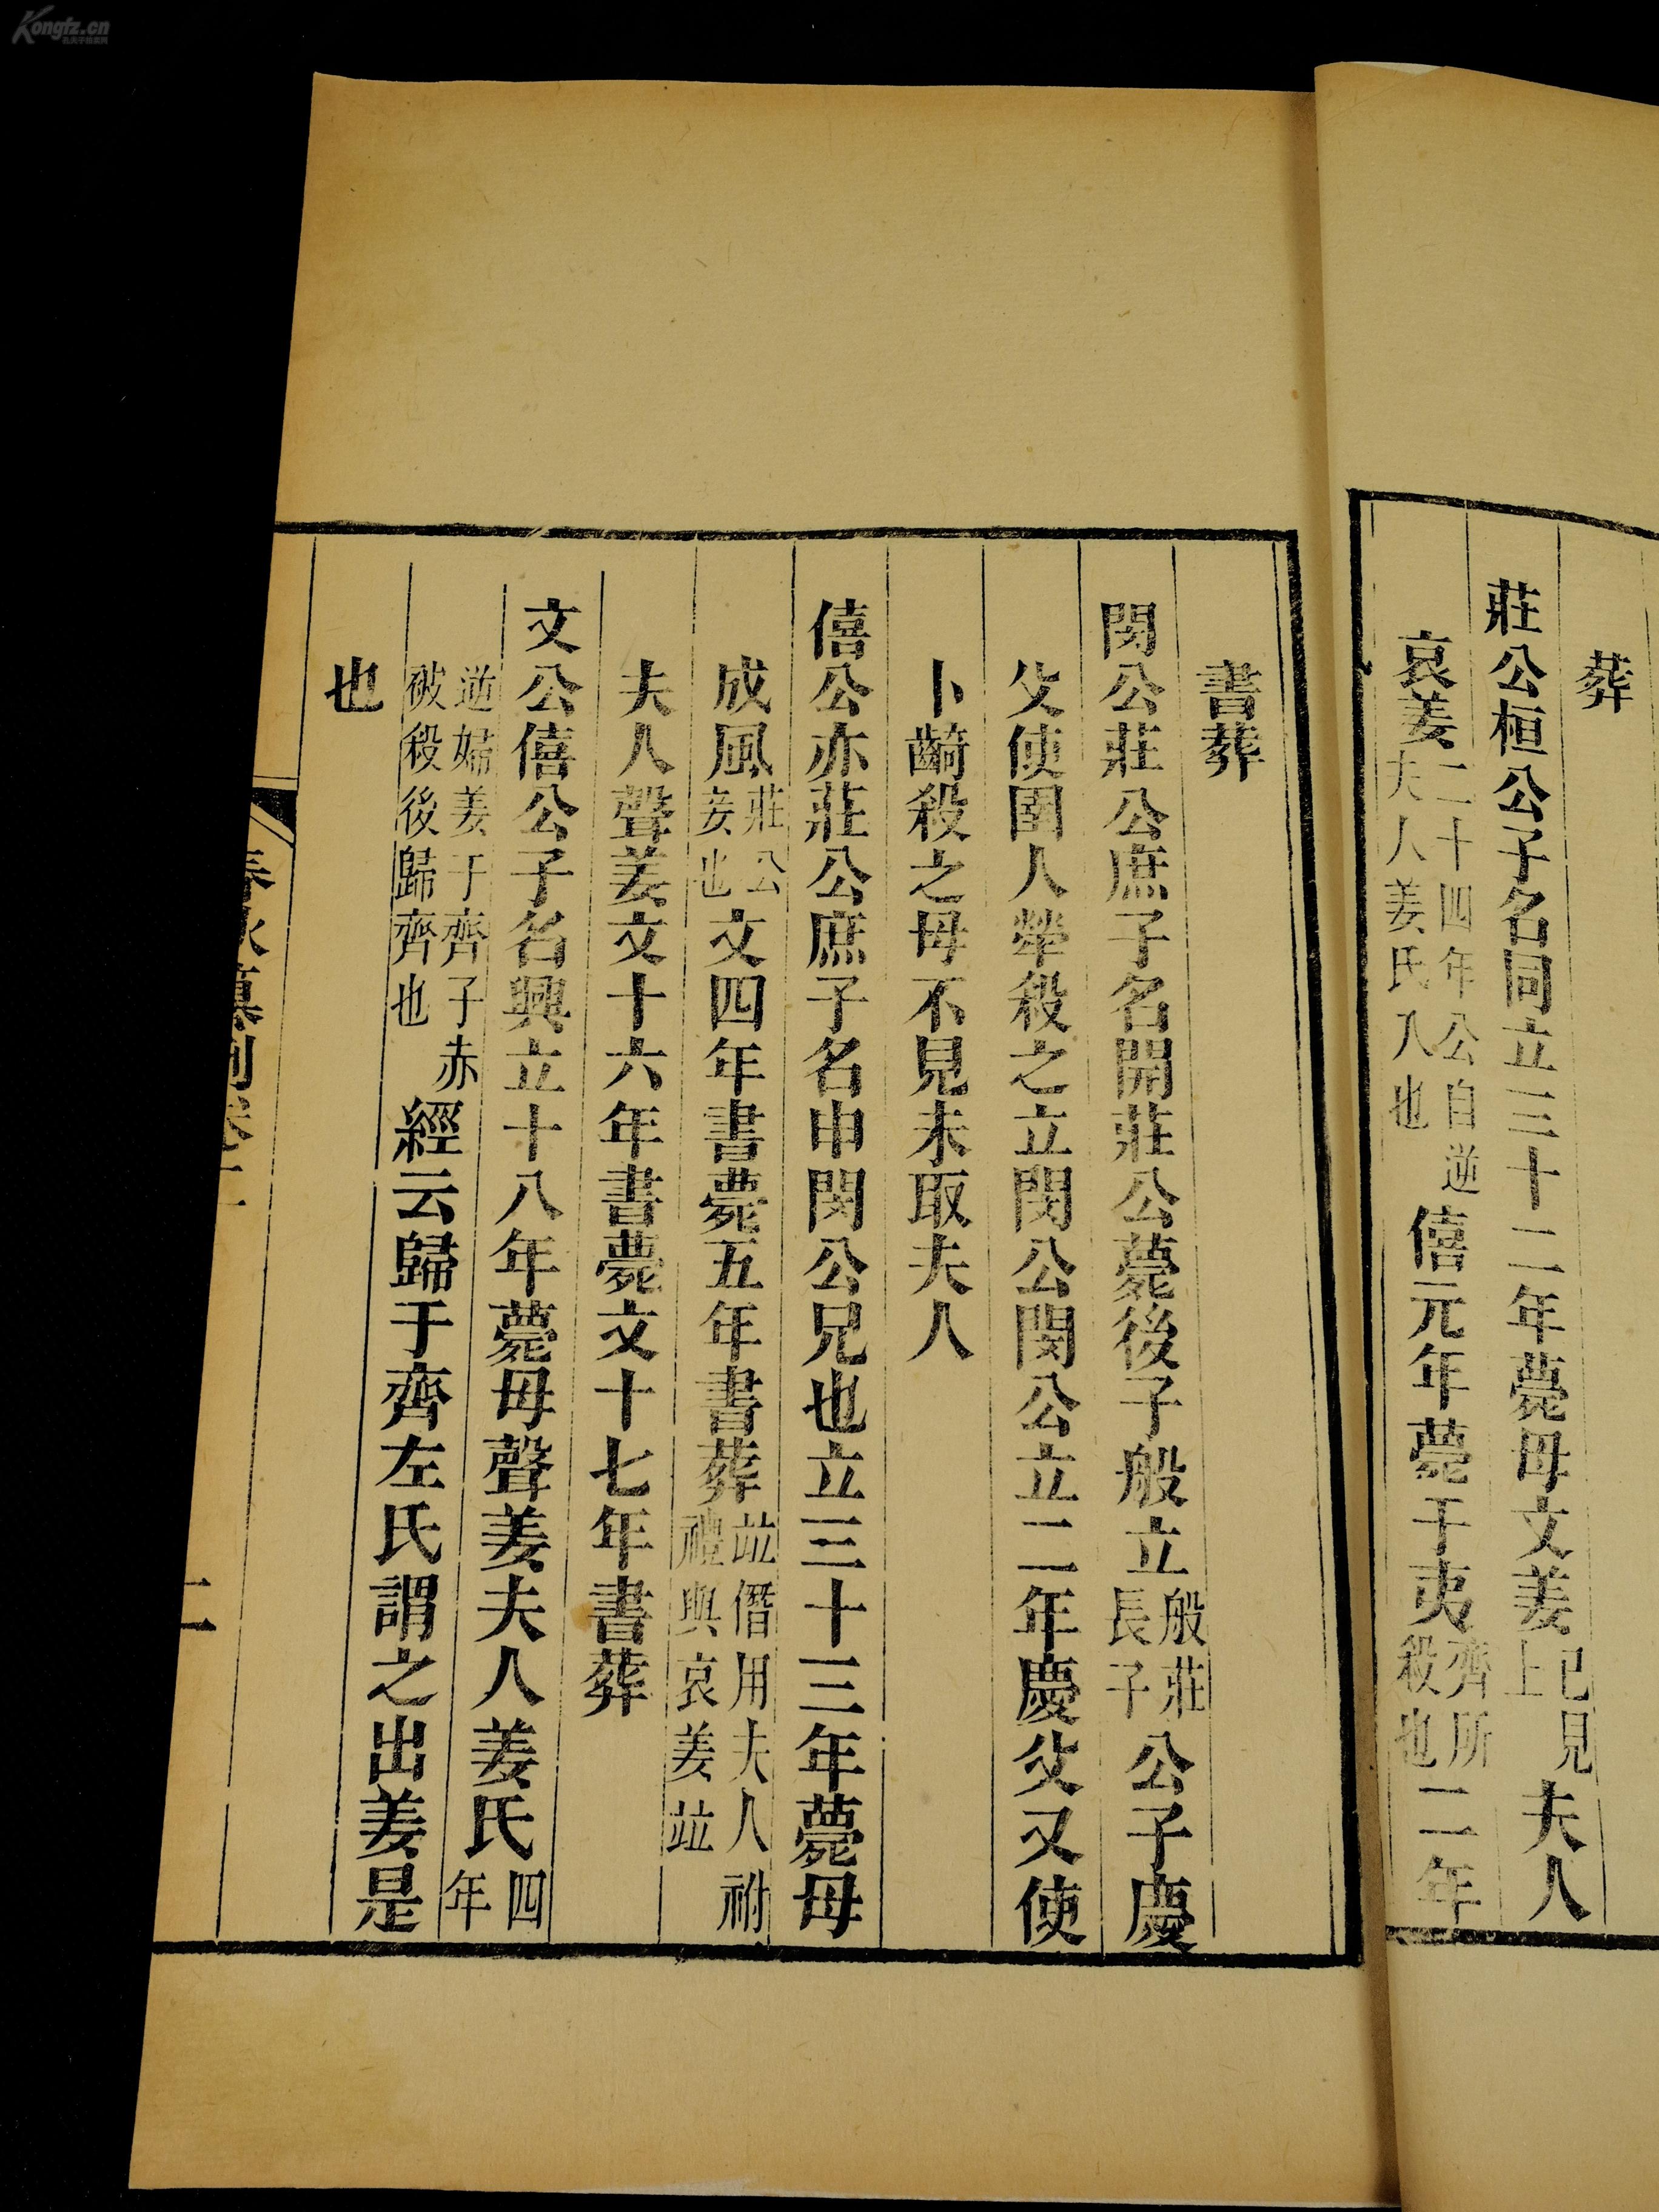 葬
莊公桓公子名同立三十二年薨母文姜已見上夫人
哀姜二十四年公自逆夫人姜氏入也僖元年薨于夷齊所殺也二年
書葬
閔公莊公庶子名開莊公薨後子般立般莊長子公子慶
父使圉人犖殺之立閔公閔公立二年慶父又使
卜齮殺之母不見未取夫人
僖公亦莊公庶子名申閔公兄也立三十三年薨母
成風莊公妾也文四年書薨五年書葬竝僭用夫人祔禮與哀姜竝
夫人聲姜文十六年書薨文十七年書葬
文公僖公子名興立十八年薨母聲姜夫人姜氏四年
逆婦姜于齊子赤被殺後歸齊也經云歸于齊左氏謂之出姜是
也
二
Kongfz.cn